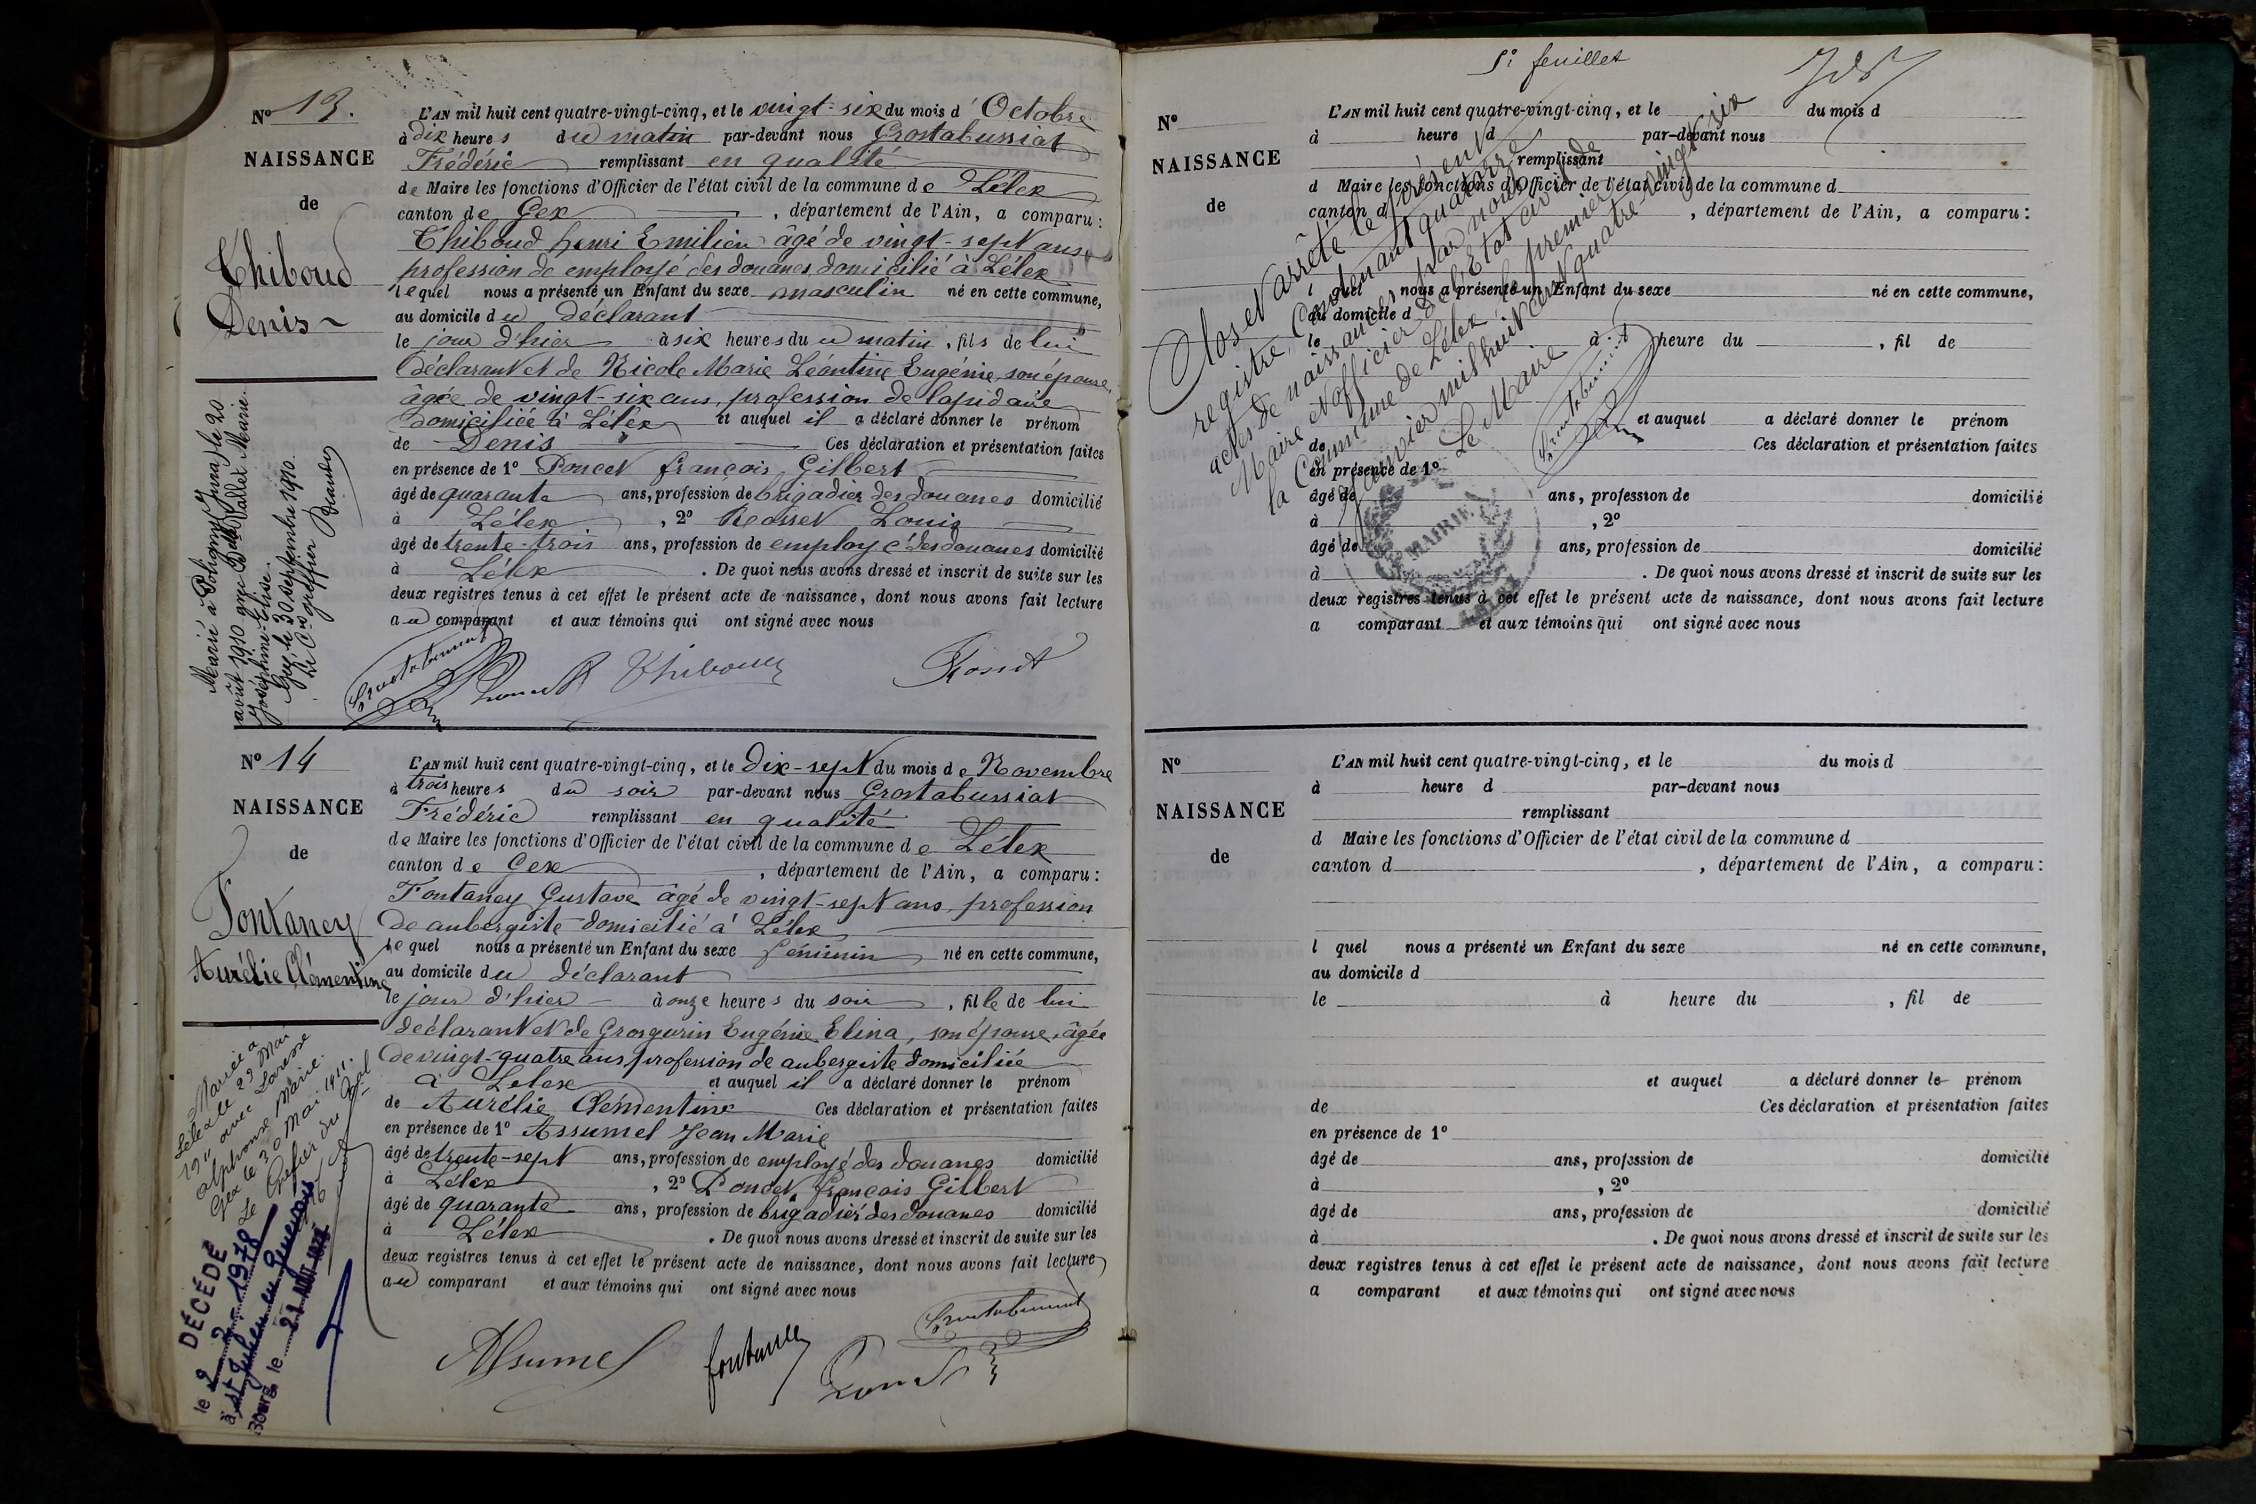 N° 13.
NAISSANCE
de
Thiboud
Denis
L'AN mil huit cent quatre-vingt-cinq, et le vingt-six du mois d'Octobre
à dix heures du matin par-devant nous Grostabussiat
Frédéric remplissant en qualité
de Maire les fonctions d'Officier de l'état civil de la commune de Lélex
canton de Gex, département de l'Ain, a comparu:
Thiboud henri Emilien âgé de vingt-sept ans
profession de employé des douanes domicilié à Lélex
lequel nous a présenté un Enfant du sexe masculin né en cette commune,
au domicile du déclarant
le jour d'hier à six heures du matin, fils de lui
déclarant et de Nicole Marie Léontine Eugénie, son épouse,
âgée de vingt-six ans, profession de lapidaire
domiciliée à Lélex et auquel il a déclaré donner le prénom
de Denis Ces déclaration et présentation faites
en présence de 1° Poncet françois Gilbert
âgé de quarante ans, profession de brigadier des douanes domicilié
à Lélex, 2° Rosset Louis
âgé de trente-trois ans, profession de employé des douanes domicilié
à Lélex. De quoi nous avons dressé et inscrit de suite sur les
deux registres tenus à cet effet le présent acte de naissance, dont nous avons fait lecture
au comparant et aux témoins qui ont signé avec nous
Grostabussiat Poncet Thiboud Rosset
Marié à Poligny (Jura) le 20
août 1910
Joséphine-Elise.
Gex, le 30 septembre 1910.
Le Cis-greffier
N° 14
NAISSANCE
de
Fontaney
Aurélie Clémentine
L'AN mil huit cent quatre-vingt-cinq, et le dix-sept du mois de Novembre
à trois heures du soir par-devant nous Grostabussiat
Frédéric remplissant en qualité
de Maire les fonctions d'Officier de l'état civil de la commune de Lélex
canton de Gex, département de l'Ain, a comparu:
Fontaney Gustave âgé de vingt-sept ans, profession
de aubergiste domicilié à Lélex
lequel nous a présenté un Enfant du sexe féminin né en cette commune,
au domicile du déclarant
le jour d'hier à onze heures du soir, fille de lui
déclarant et de Grosgurin Eugénie Elina, son épouse, âgée
de vingt-quatre ans, profession de aubergiste domiciliée
à Lelex et auquel il a déclaré donner le prénom
de Aurélie Clémentine Ces déclaration et présentation faites
en présence de 1° Assumel Jean Marie
âgé de trente-sept ans, profession de employé des douanes domicilié
à Lélex, 2° Poncet françois Gilbert
âgé de quarante ans, profession de brigadier des douanes domicilié
à Lélex. De quoi nous avons dressé et inscrit de suite sur les
deux registres tenus à cet effet le présent acte de naissance, dont nous avons fait lecture
au comparant et aux témoins qui ont signé avec nous
Grostabussiat
Assumel fontaney Poncet
Mariée à
Lélex le 29 Mai
1911 avec
Alphonse Marie.
Gex le 30 Mai 1911.
Le Greffier du
DÉCÉDÉ
le 2 2 1978
à St Julien en Genevois
51 feuillet
N°
NAISSANCE
de
L'AN mil huit cent quatre-vingt-cinq, et le du mois d
à heure d par-devant nous
remplissant
d Maire les fonctions d'Officier de l'état civil de la commune d
canton d, département de l'Ain, a comparu:
l quel nous a présenté un Enfant du sexe né en cette commune,
au domicile d
le à heure du, fil de
et auquel a déclaré donner le prénom
de Ces déclaration et présentation faites
en présence de 1°
âgé de ans, profession de domicilié
à, 2°
âgé de ans, profession de domicilié
à. De quoi nous avons dressé et inscrit de suite sur les
deux registres tenus à cet effet le présent acte de naissance, dont nous avons fait lecture
a comparant et aux témoins qui ont signé avec nous
Clos et arrêté le présent
registre, contenant quatorze
actes de naissances par nous
Maire et officier de l'Etat civil de
la Commune de Lélex, le premier
Janvier mil huit cent quatre-vingt-six
Le Maire
Grostabussiat
MAIRIE
N°
NAISSANCE
de
L'AN mil huit cent quatre-vingt-cinq, et le du mois d
à heure d par-devant nous
remplissant
d Maire les fonctions d'Officier de l'état civil de la commune d
canton d, département de l'Ain, a comparu:
l quel nous a présenté un Enfant du sexe né en cette commune,
au domicile d
le à heure du, fil de
et auquel a déclaré donner le prénom
de Ces déclaration et présentation faites
en présence de 1°
âgé de ans, profession de domicilié
à, 2°
âgé de ans, profession de domicilié
à. De quoi nous avons dressé et inscrit de suite sur les
deux registres tenus à cet effet le présent acte de naissance, dont nous avons fait lecture
a comparant et aux témoins qui ont signé avec nous